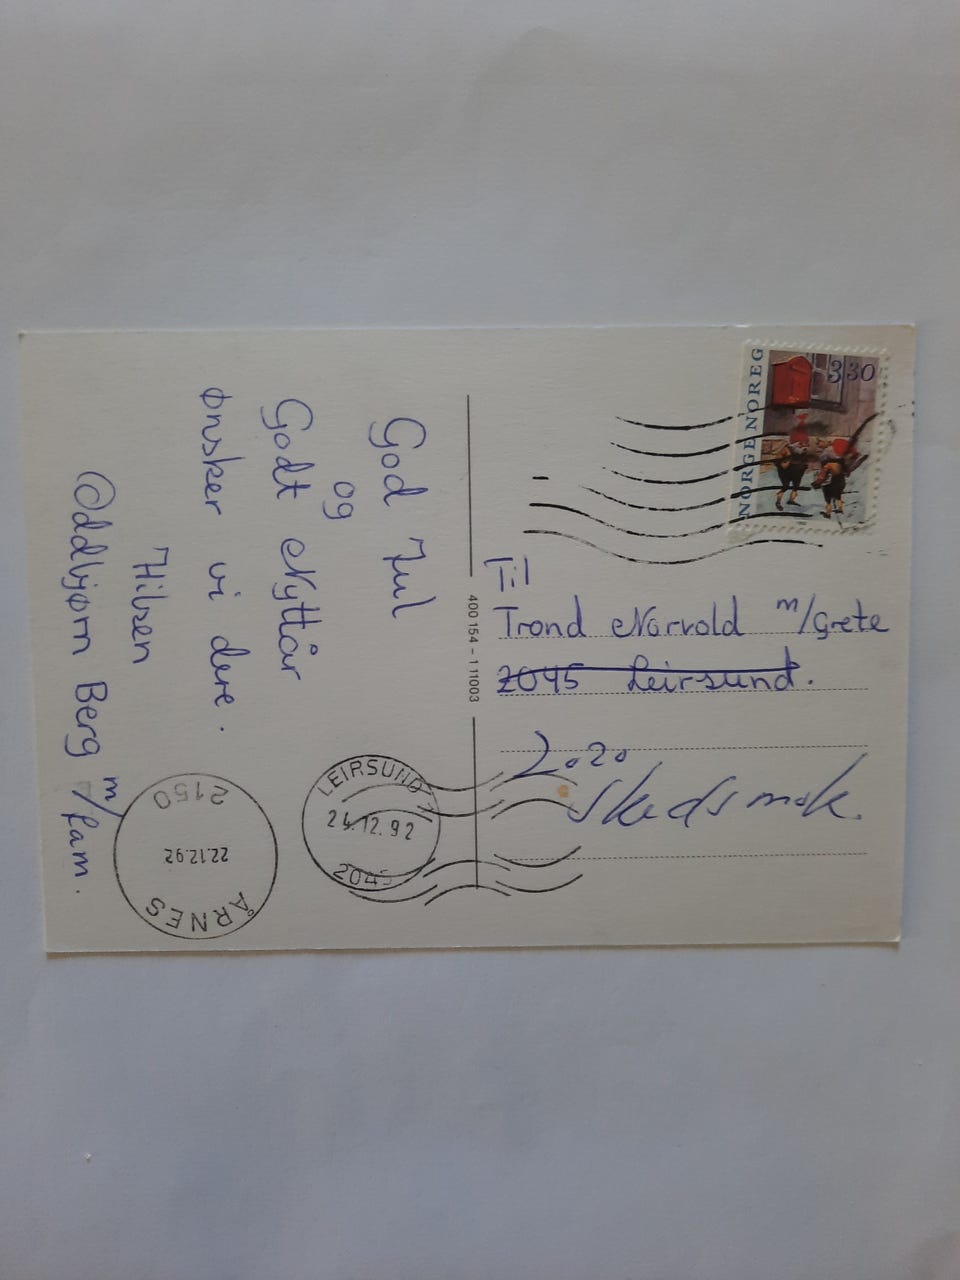 God Jul
og
Godt Nyttår
ønsker vi dere.
Hilsen
Oddbjørn Berg m/fam.
ÅRNES
22.12.92
2150
LEIRSUND
24.12.92
2045
400 154 - 111003
NORGE NOREG
3 30
Til
Trond Norvold m/Grete
2045 Leirsund.
2020
Skedsmok.